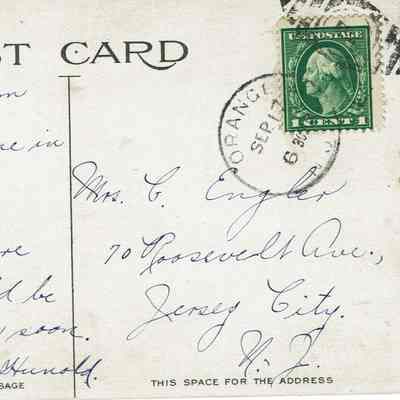 ST CARD
U.S. POSTAGE
1 CENT 1
ORANGE
SEP 17
6 30
N.J.
se in
Mrs. C. Engler
70 Roosevelt Ave.,
Jersey City.
N. J.
ere
d be
soon.
Hunold.
SSAGE
THIS SPACE FOR THE ADDRESS